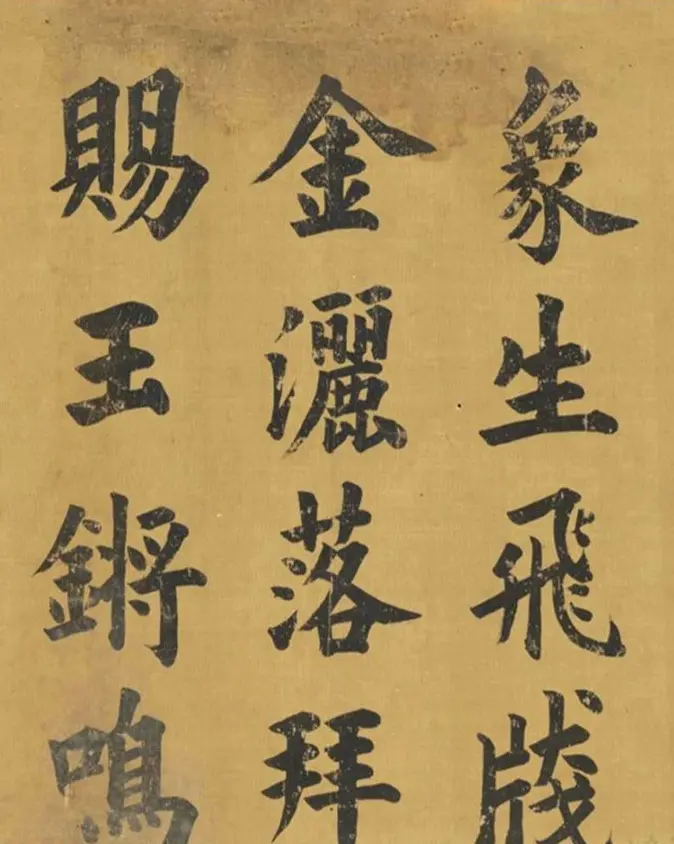 象生飛牋
金灑落拜
賜王鏘鳴